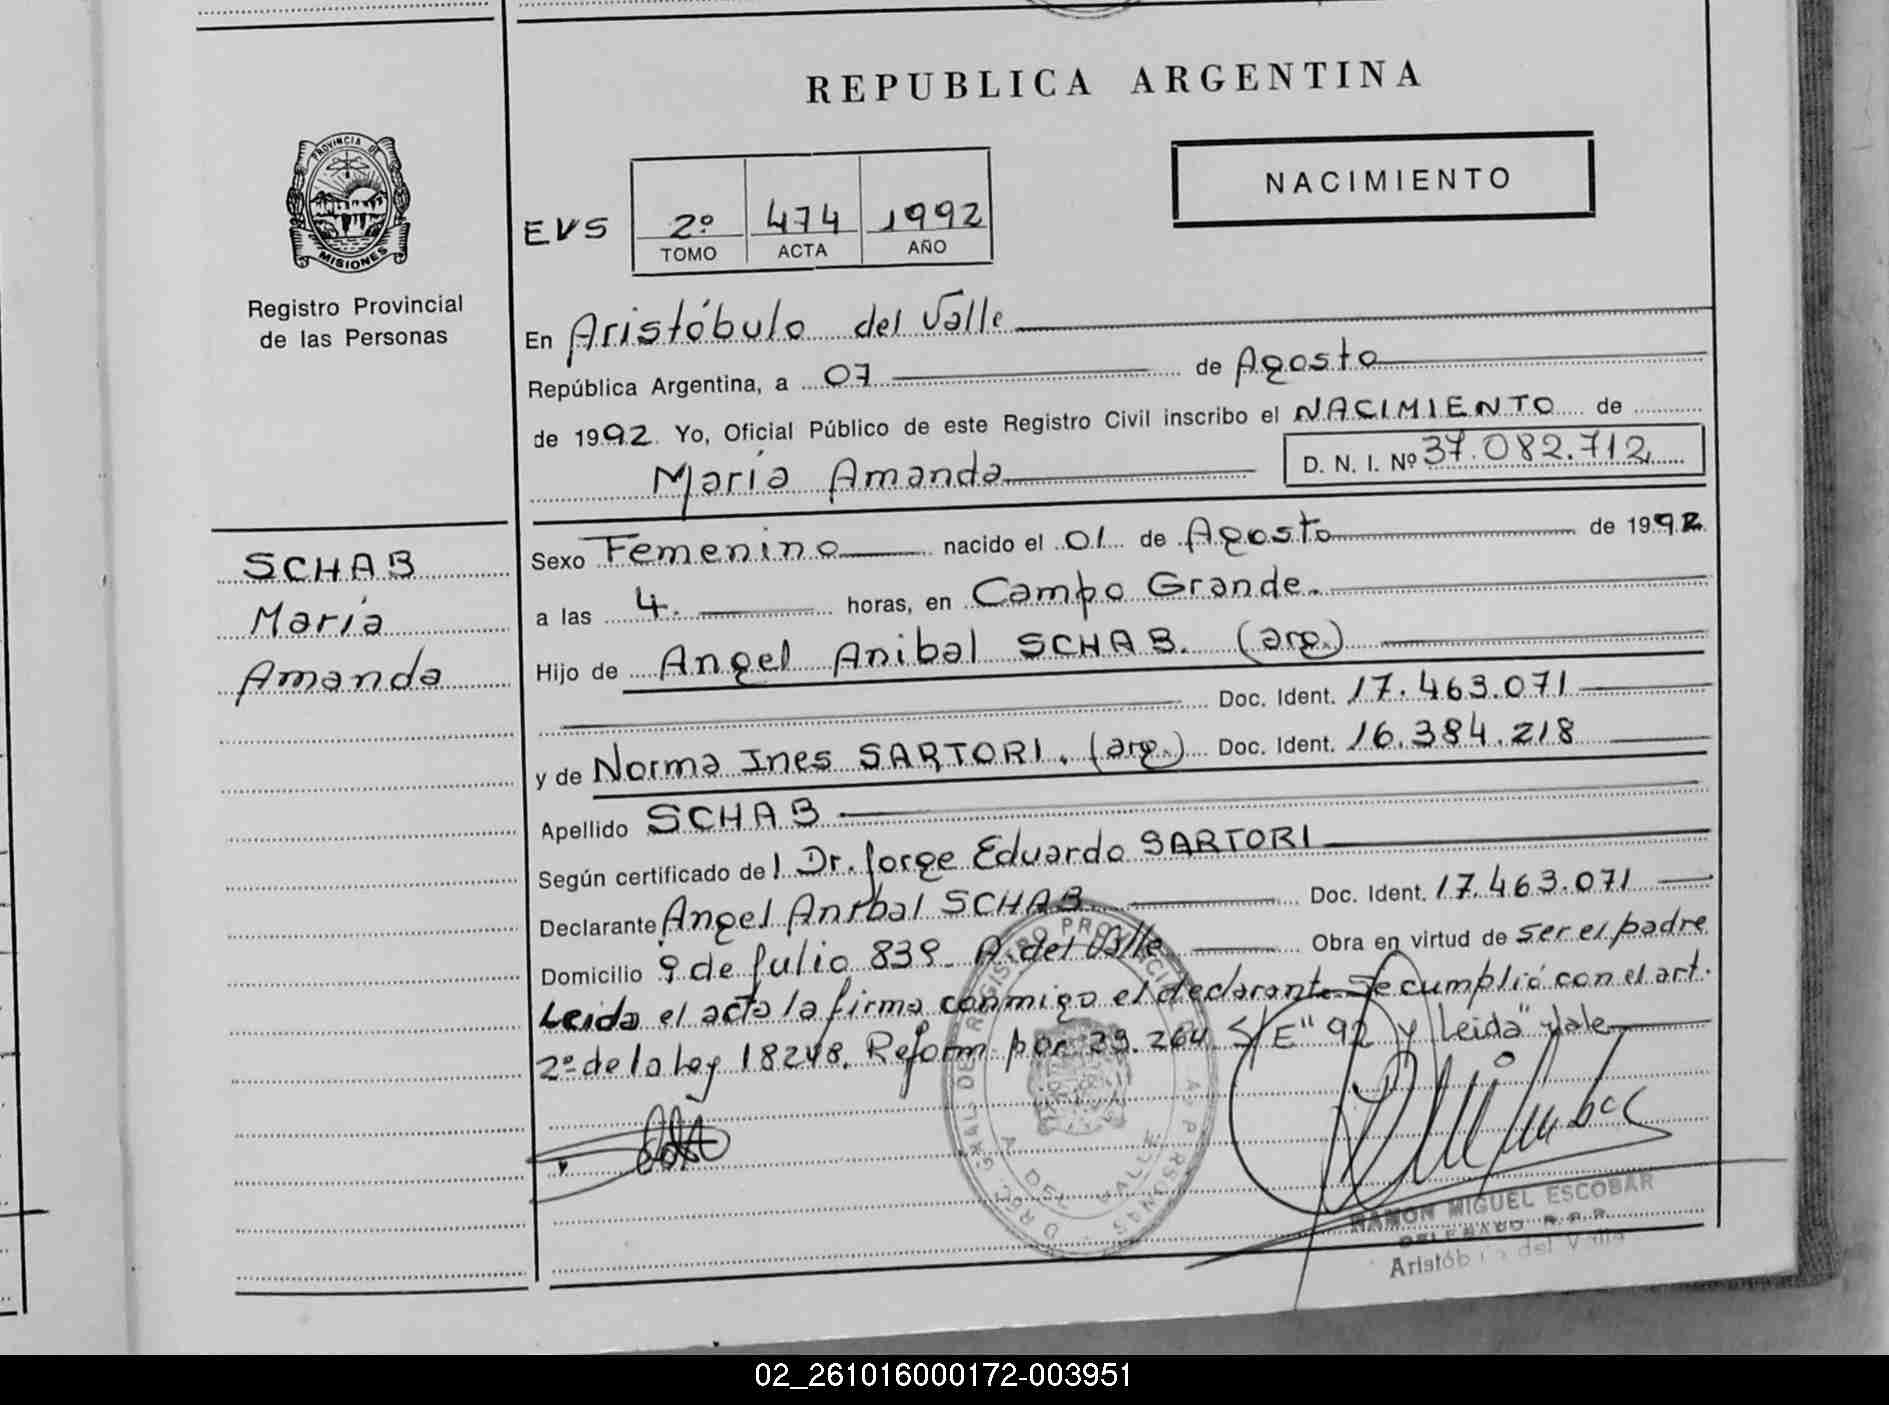 REPUBLICA ARGENTINA
PROVINCIA DE
MISIONES
Registro Provincial
de las Personas
NACIMIENTO
EVS
2º 474 1992
TOMO ACTA AÑO
En Aristóbulo del Valle
República Argentina, a 07 de Agosto
de 1992. Yo, Oficial Público de este Registro Civil inscribo el NACIMIENTO de
María Amanda D. N. I. Nº 37.082.712
SCHAB
María
Amanda
Sexo Femenino nacido el 01 de Agosto de 1992.
a las 4. horas, en Campo Grande.
Hijo de Angel Anibal SCHAB. (arg.)
Doc. Ident. 17.463.071
y de Norma Ines SARTORI. (arg.) Doc. Ident. 16.384.218
Apellido SCHAB
Según certificado del Dr. Jorge Eduardo SARTORI
Declarante Angel Anibal SCHAB Doc. Ident. 17.463.071
Domicilio 9 de Julio 839. A. del Valle Obra en virtud de ser el padre
Leida el acta la firma conmigo el declarante. Se cumplió con el art.
2º de la Ley 18248. Reform. por 23.264. S/E "92 y Leida" vale
REGISTRO PROVINCIAL DE LAS PERSONAS
A. DEL VALLE
RAMON MIGUEL ESCOBAR
DELEGADO R.P.P.
Aristóbulo del Valle
02_261016000172-003951